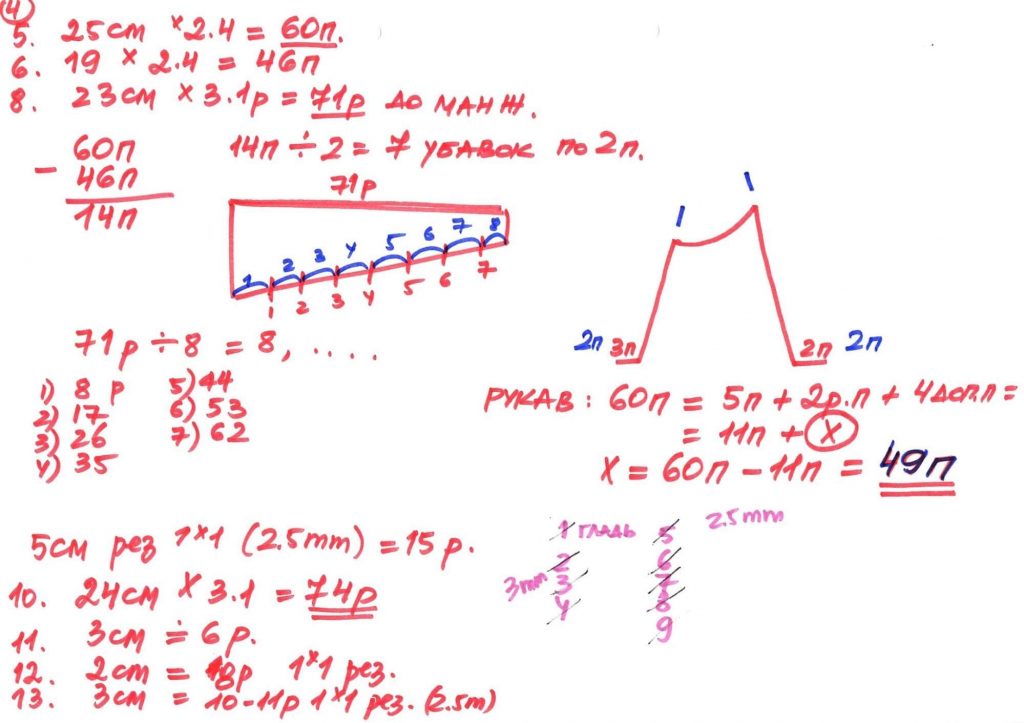 4
5. 25см × 2.4 = 60п.
6. 19 × 2.4 = 46п
8. 23см × 3.1р = 71р до манж.
60п
− 46п
14п
14п ÷ 2 = 7 убавок по 2п.
71р
1 2 3 4 5 6 7 8
1 2 3 4 5 6 7
71р ÷ 8 = 8, ....
1) 8 р
2) 17
3) 26
4) 35
5) 44
6) 53
7) 62
1 1
2п 3п 2п 2п
РУКАВ: 60п = 5п + 2р.п + 4 доп.п =
= 11п + X
X = 60п − 11п = 49п
5см рез 1×1 (2.5mm) = 15 р.
10. 24см × 3.1 = 74р
11. 3см ÷ 6р.
12. 2см = 8р 1×1 рез.
13. 3см = 10-11р 1×1 рез. (2.5m)
1 гладь
2
3mm 3
4
5 2.5mm
6
7
8
9